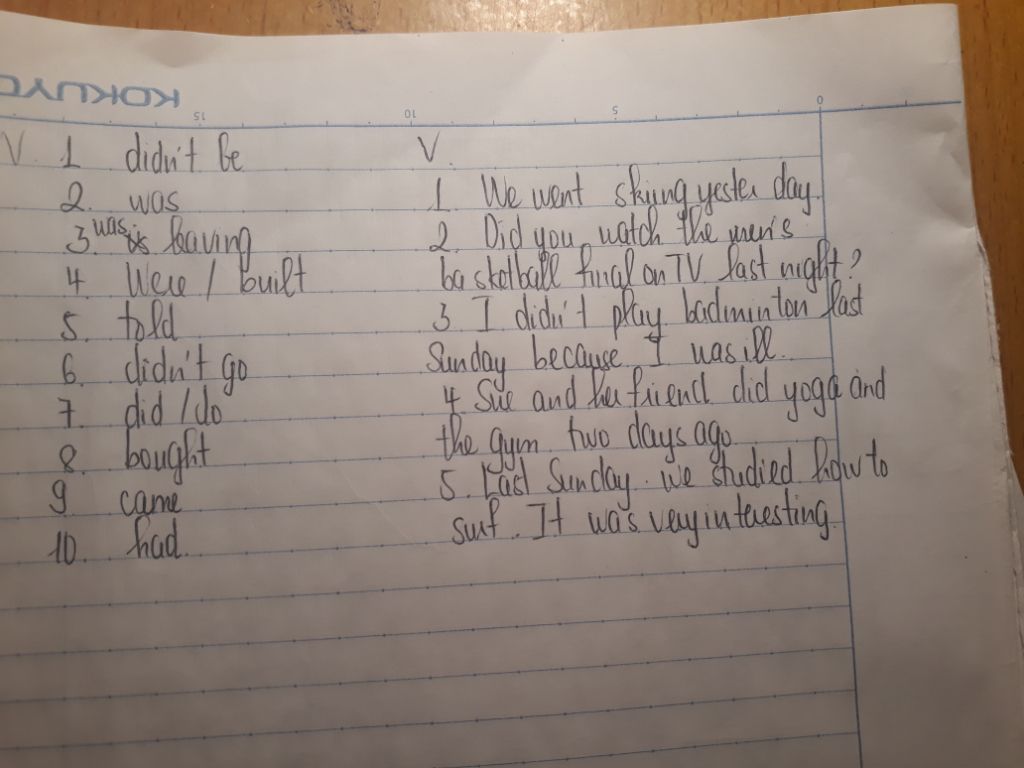 KOKUYO
15 10 5 0
V. 1 didn't be
2. was
3 was is leaving
4 Were / built
5. told
6. didn't go
7. did / do
8. bought
9. came
10. had
V.
1 We went skiing yester day.
2. Did you watch the men's
basketball final on TV last night?
3 I didn't play badminton last
Sunday because I was ill.
4 Sue and her friend did yoga and
the gym two days ago
5. Last Sunday we studied how to
surf. It was very interesting.